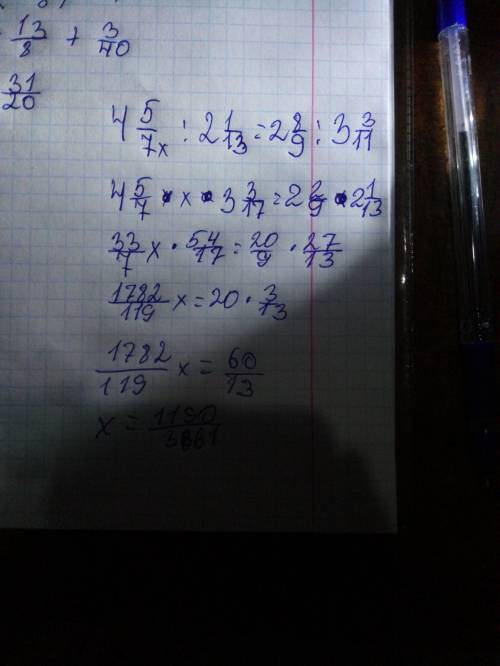 13/8 + 3/40
31/20
4 5/7x : 2 1/13 = 2 2/9 : 3 3/11
4 5/7 • x • 3 3/17 = 2 2/9 • 2 1/13
33/7 x • 54/17 = 20/9 • 27/13
1782/119 x = 20 • 3/13
1782/119 x = 60/13
x = 1190/3861